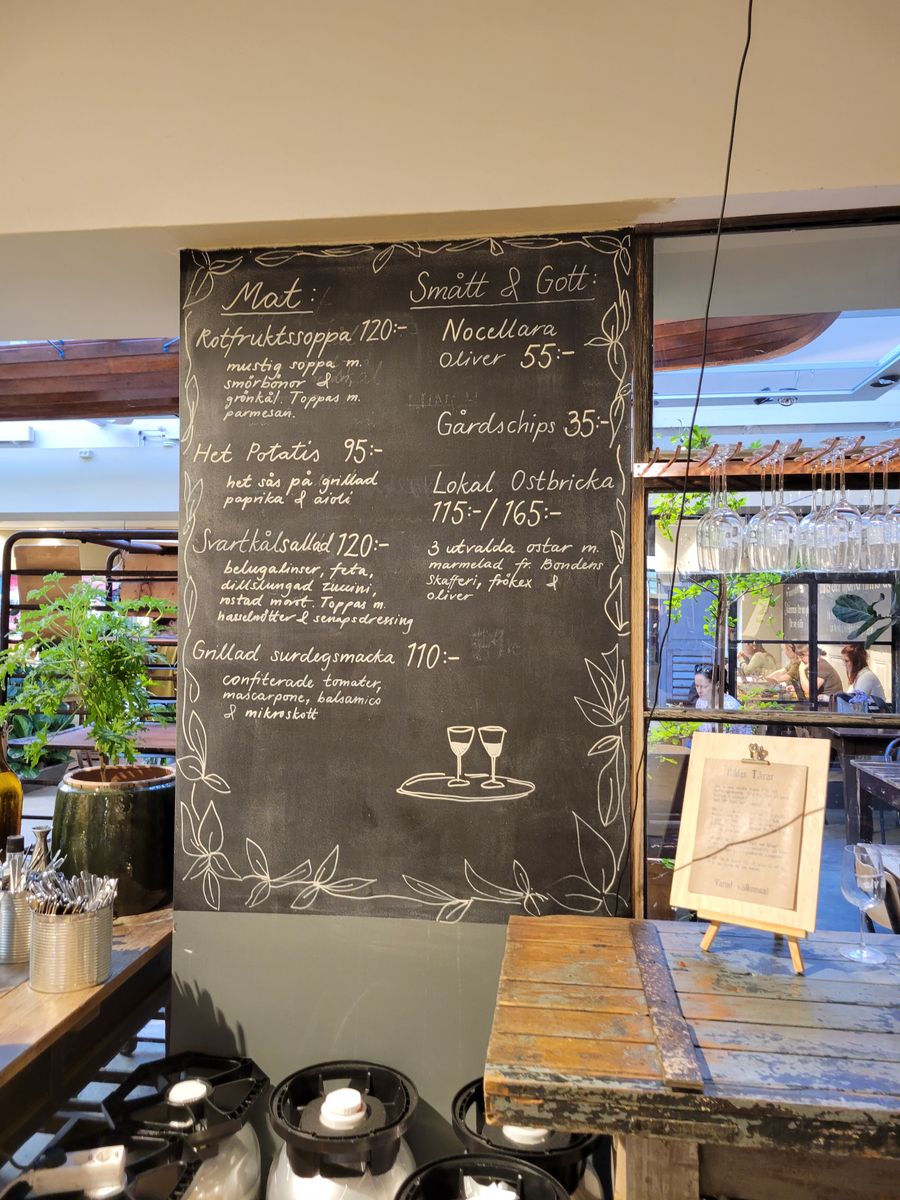 Mat:
Rotfruktssoppa 120:-
mustig soppa m.
smörbönor &
grönkål. Toppas m.
parmesan.
Het Potatis 95:-
het sås på grillad
paprika & aioli
Svartkålsallad 120:-
belugalinser, feta,
dillslungad zuccini,
rostad morot. Toppas m.
hasselnötter & senapsdressing
Grillad surdegsmacka 110:-
confiterade tomater,
mascarpone, balsamico
& mikroskott
Smått & Gott:
Nocellara
Oliver 55:-
Gårdschips 35:-
Lokal Ostbricka
115:-/165:-
3 utvalda ostar m.
marmelad fr. Bondens
Skafferi, frökex &
oliver
Tårar
Varmt välkomna!